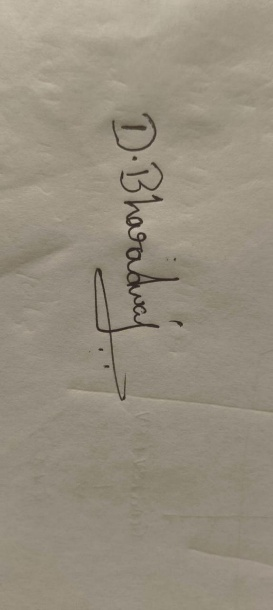 D. Bharadwaj